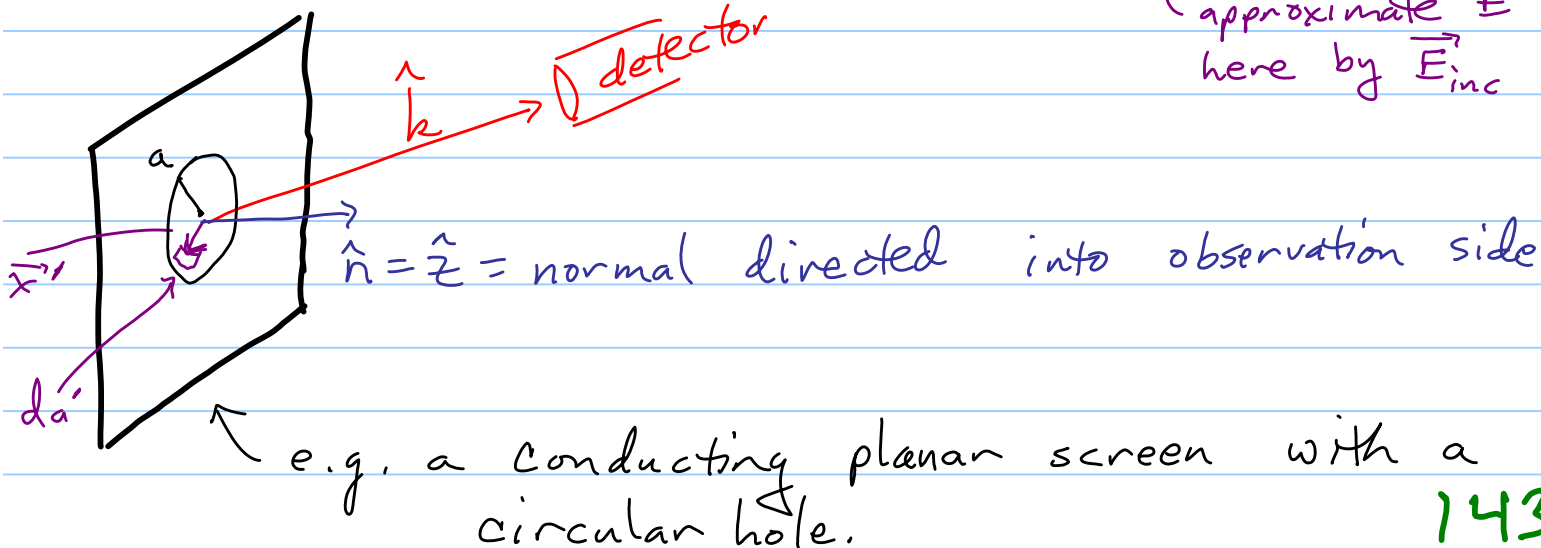 (approximate E
here by E⃗inc
detector
k̂
a
n̂ = ẑ = normal directed into observation side
x⃗'
da'
e.g. a conducting planar screen with a
circular hole.
143